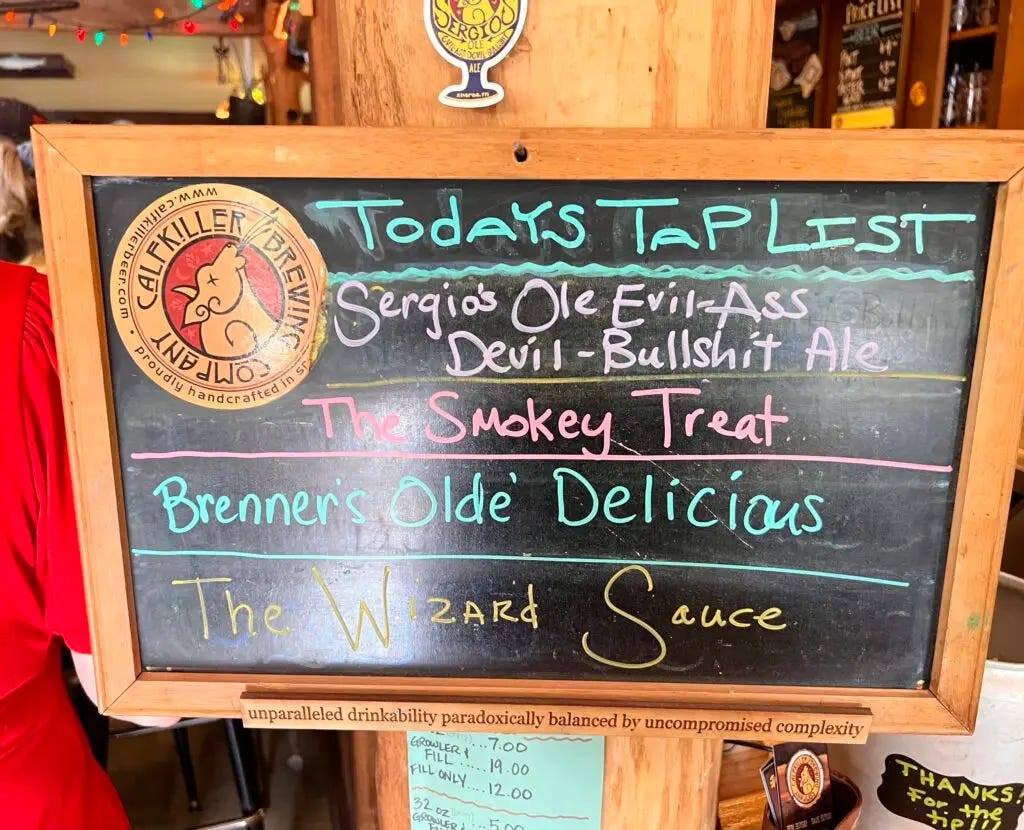 SERGIO'S
OLE
ALE
SPARTA, TN
PRICE LIST
BEER
www.calfkillerbeer.com
CALFKILLER BREWING
COMPANY
proudly handcrafted in
TOdAYS TAP LIST
Sergio's Ole Evil-Ass
Devil-Bullshit Ale
The Smokey Treat
Brenner's Olde' Delicious
The WizARd Sauce
unparalleled drinkability paradoxically balanced by uncompromised complexity
...7.00
GROWLER &
FILL.....19.00
FILL ONLY....12.00
32 oz
...5.00
GROWLER &
THANKS!
For the
tip!!!